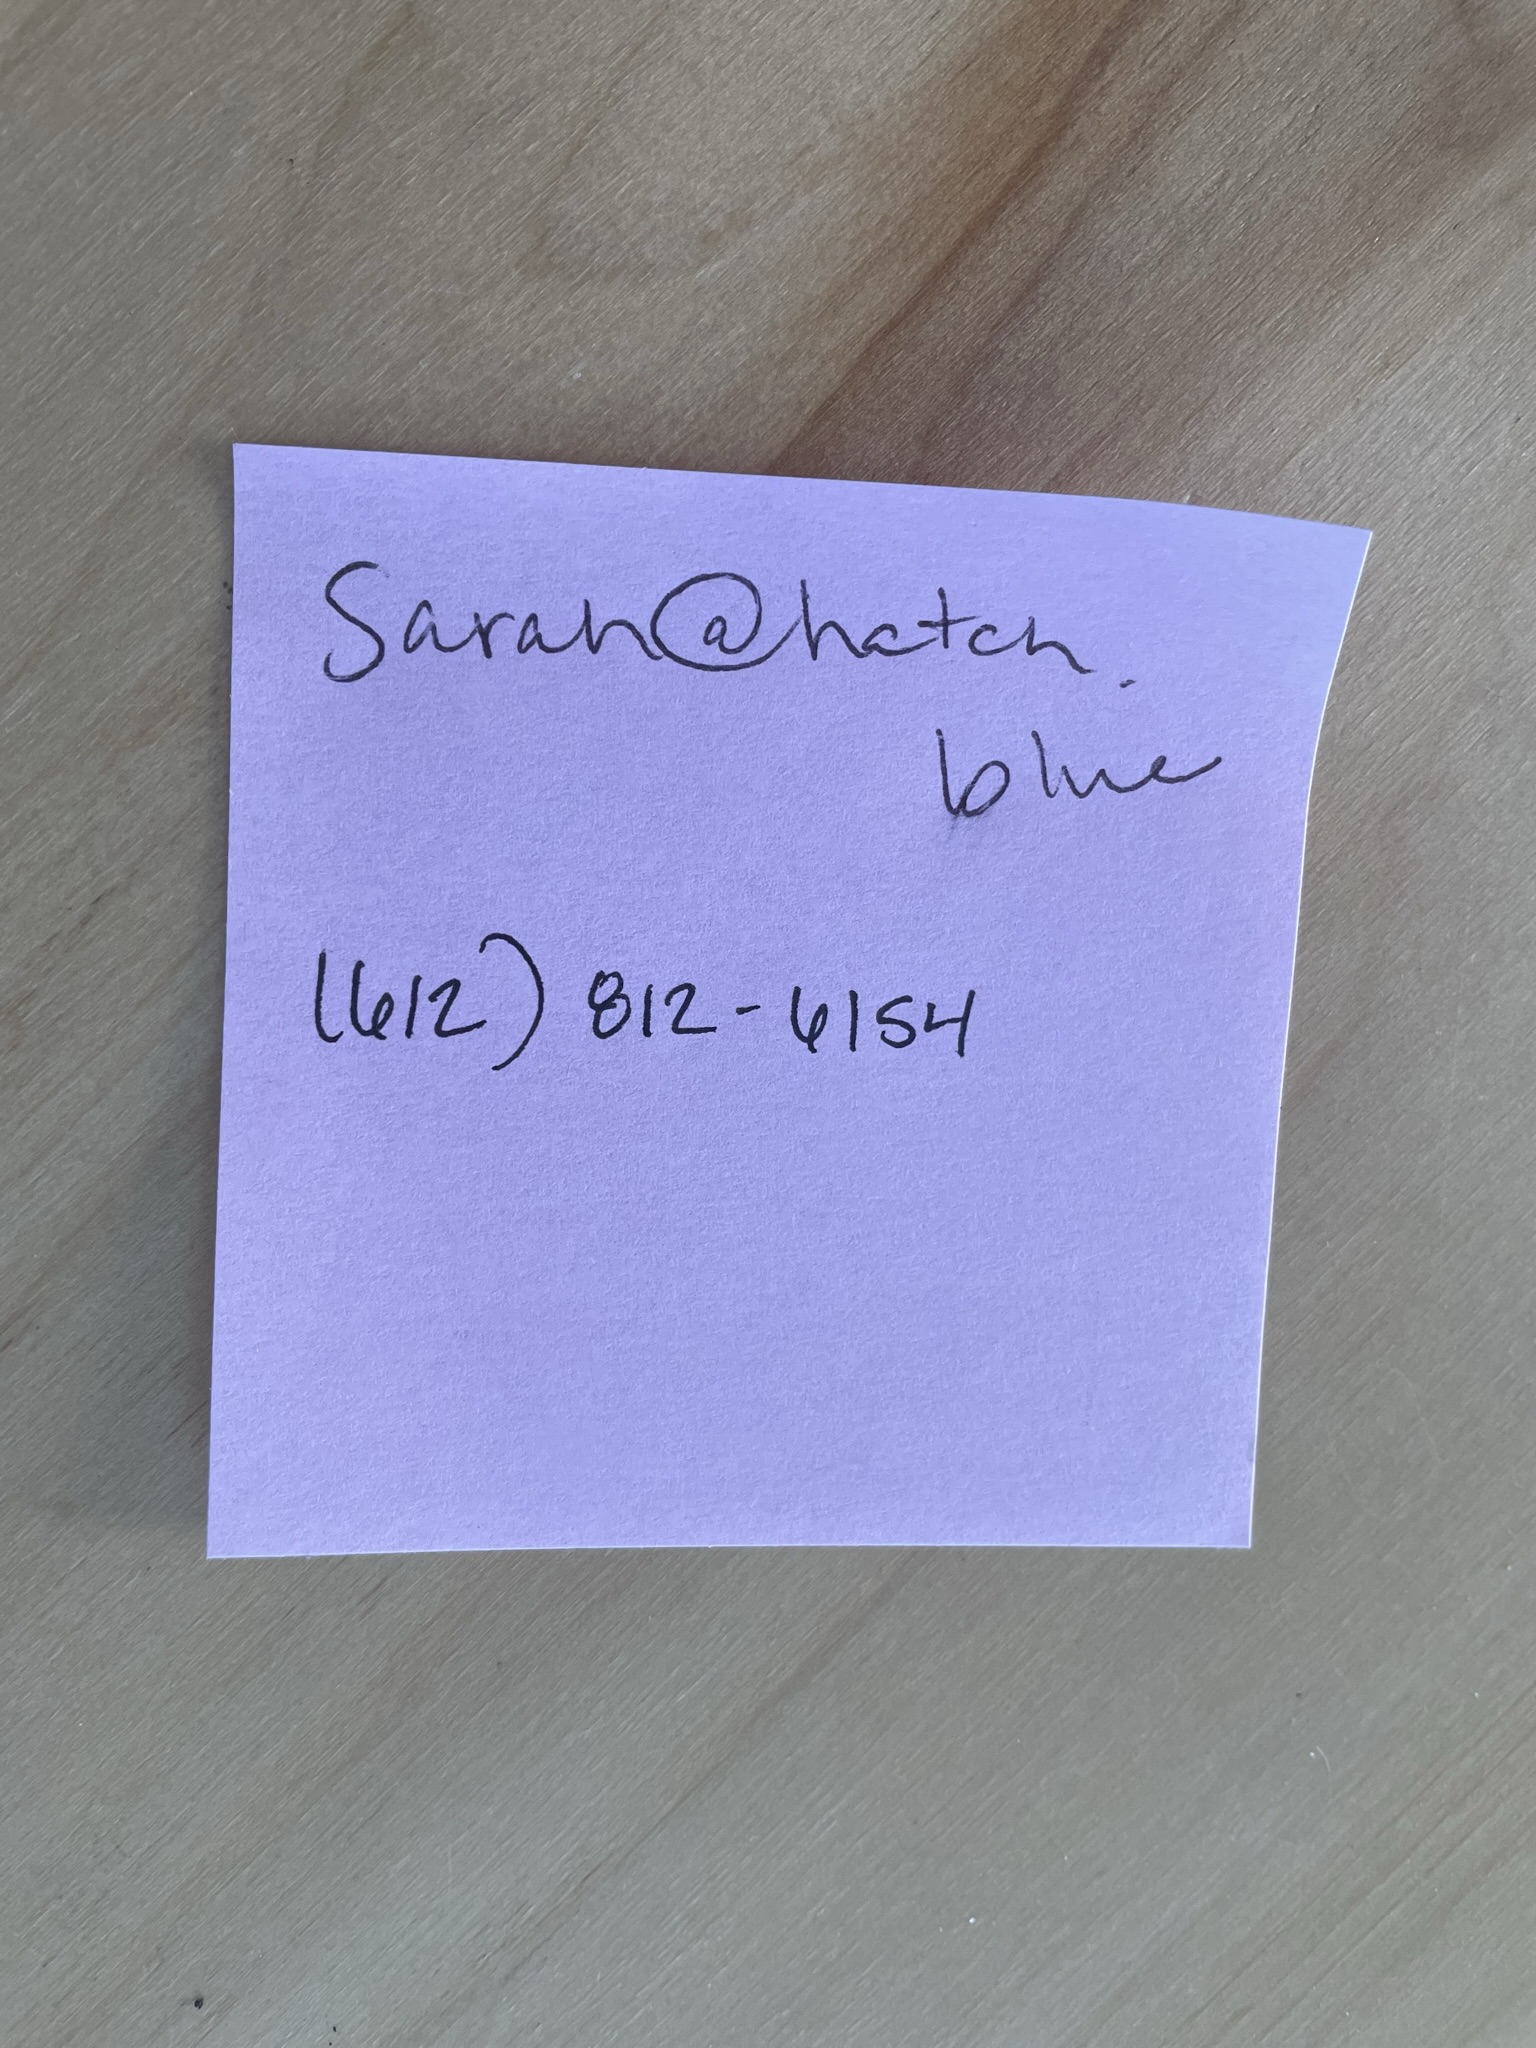 Sarah@hatch.
blue
(612) 812-6154